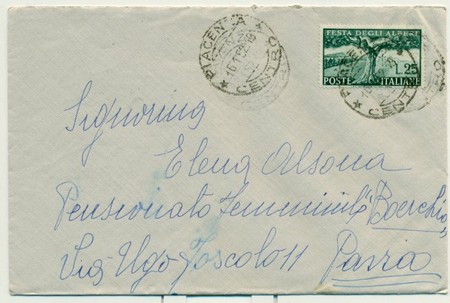 PIACENZA CENTRO
FESTA DEGLI ALBERI
L.25
POSTE ITALIANE
Signorina
Elena Alsona
Pensionato Femminile "Boerchio"
Via Ugo Foscolo 11 Pavia